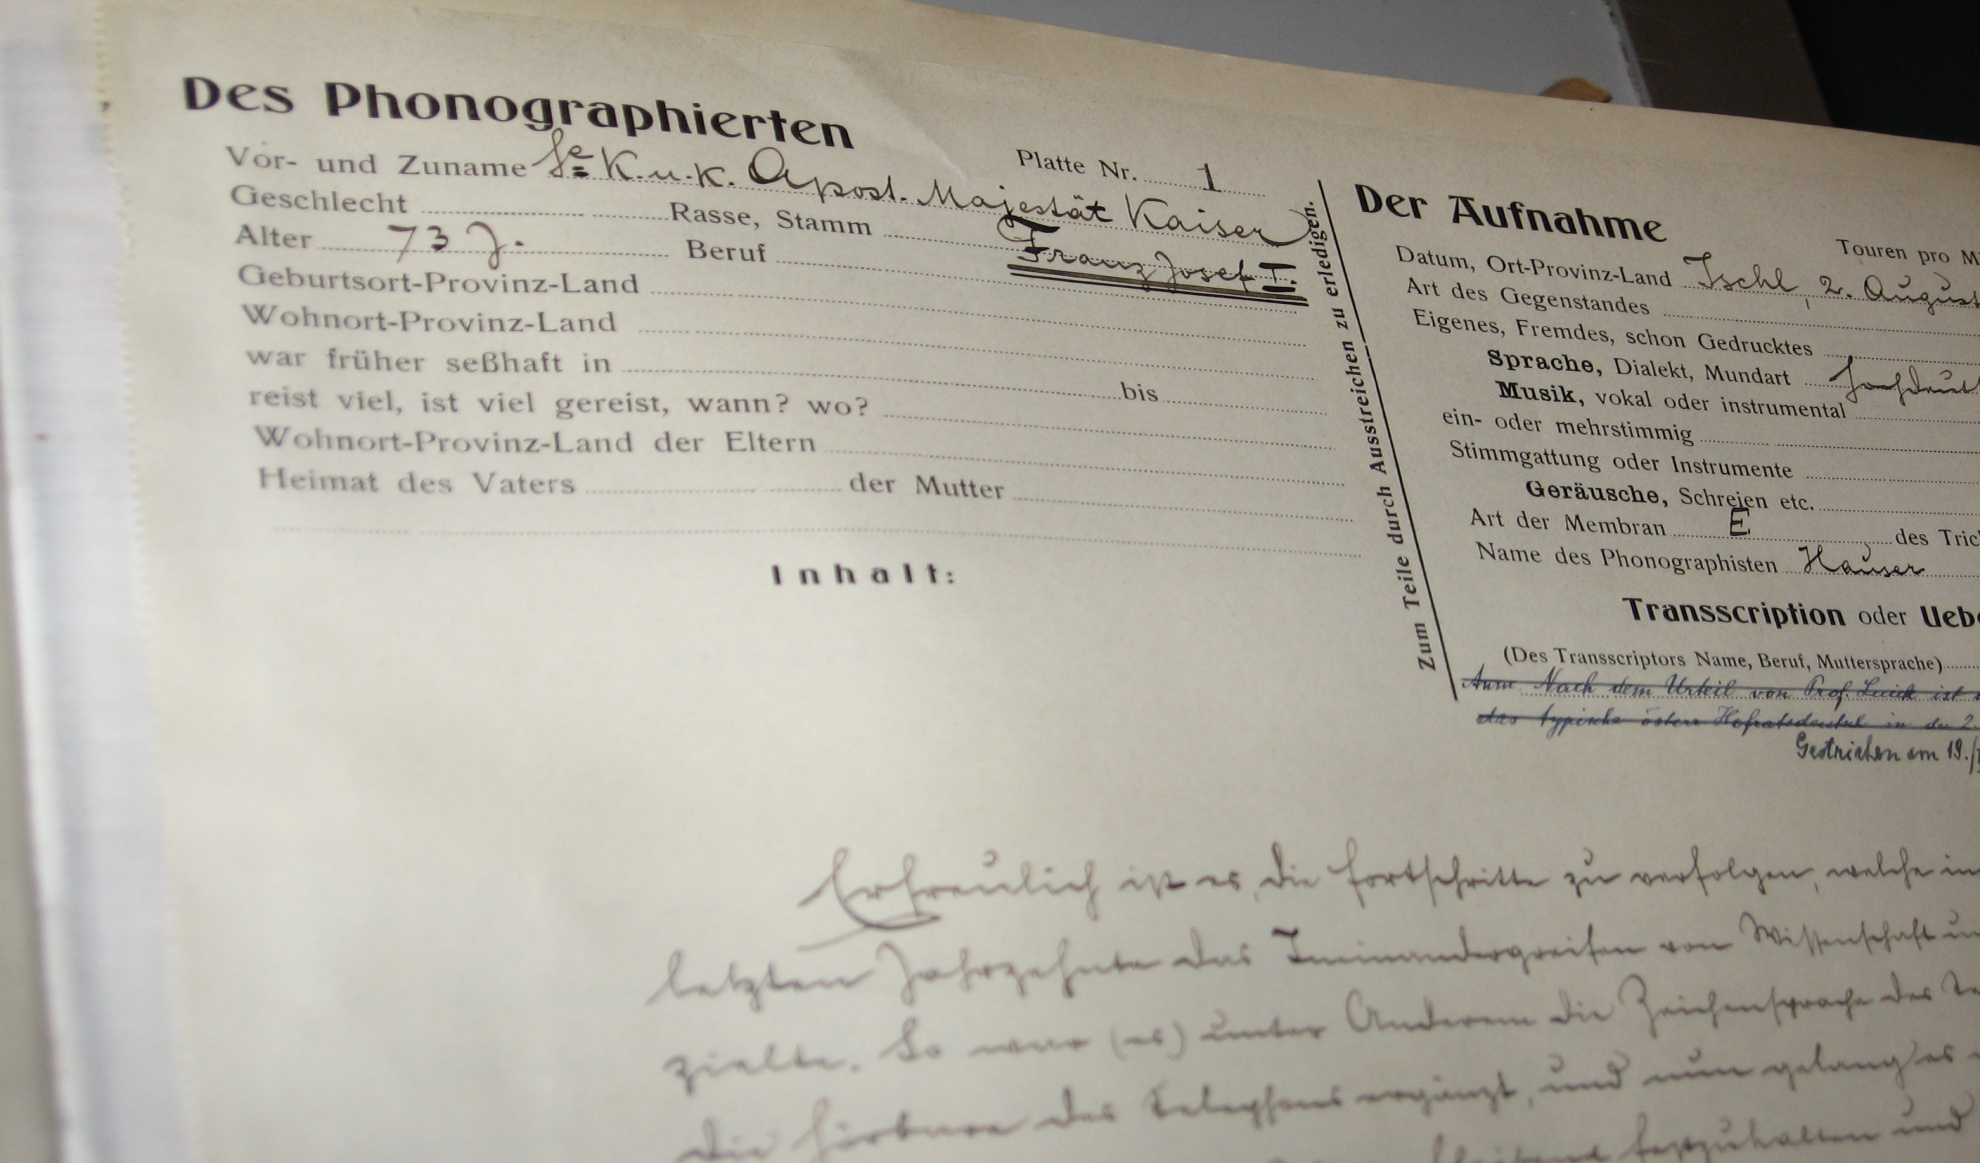 Des Phonographierten
Platte Nr. 1
Vor- und Zuname Se K. u. K. Apost. Majestät Kaiser
Geschlecht Rasse, Stamm Franz Josef I.
Alter 73 J. Beruf
Geburtsort-Provinz-Land
Wohnort-Provinz-Land
war früher seßhaft in bis
reist viel, ist viel gereist, wann? wo?
Wohnort-Provinz-Land der Eltern
Heimat des Vaters der Mutter
Inhalt:
Zum Teile durch Ausstreichen zu erledigen.
Der Aufnahme
Touren pro M
Datum, Ort-Provinz-Land Ischl, 2. August
Art des Gegenstandes
Eigenes, Fremdes, schon Gedrucktes
Sprache, Dialekt, Mundart Hochdeut
Musik, vokal oder instrumental
ein- oder mehrstimmig
Stimmgattung oder Instrumente
Geräusche, Schreien etc.
Art der Membran E des Tric
Name des Phonographisten Hauser
Transscription oder Ueb
(Des Transscriptors Name, Beruf, Muttersprache)
Anm. Nach dem Urteil von Prof. Luick ist
das typische österr Hofratsdeutsch in der 2.
Gestrichen am 19./
Erfreulich ist es, die Fortschritte zu verfolgen, welche in
letzten Jahrzehnte das Ineinandergreifen von Wissenschaft un
zielte. So war (es) unter Anderem die Zeichensprache des Te
die hörbare des Telephons ergänzt, und nun gelang es
festzuhalten und